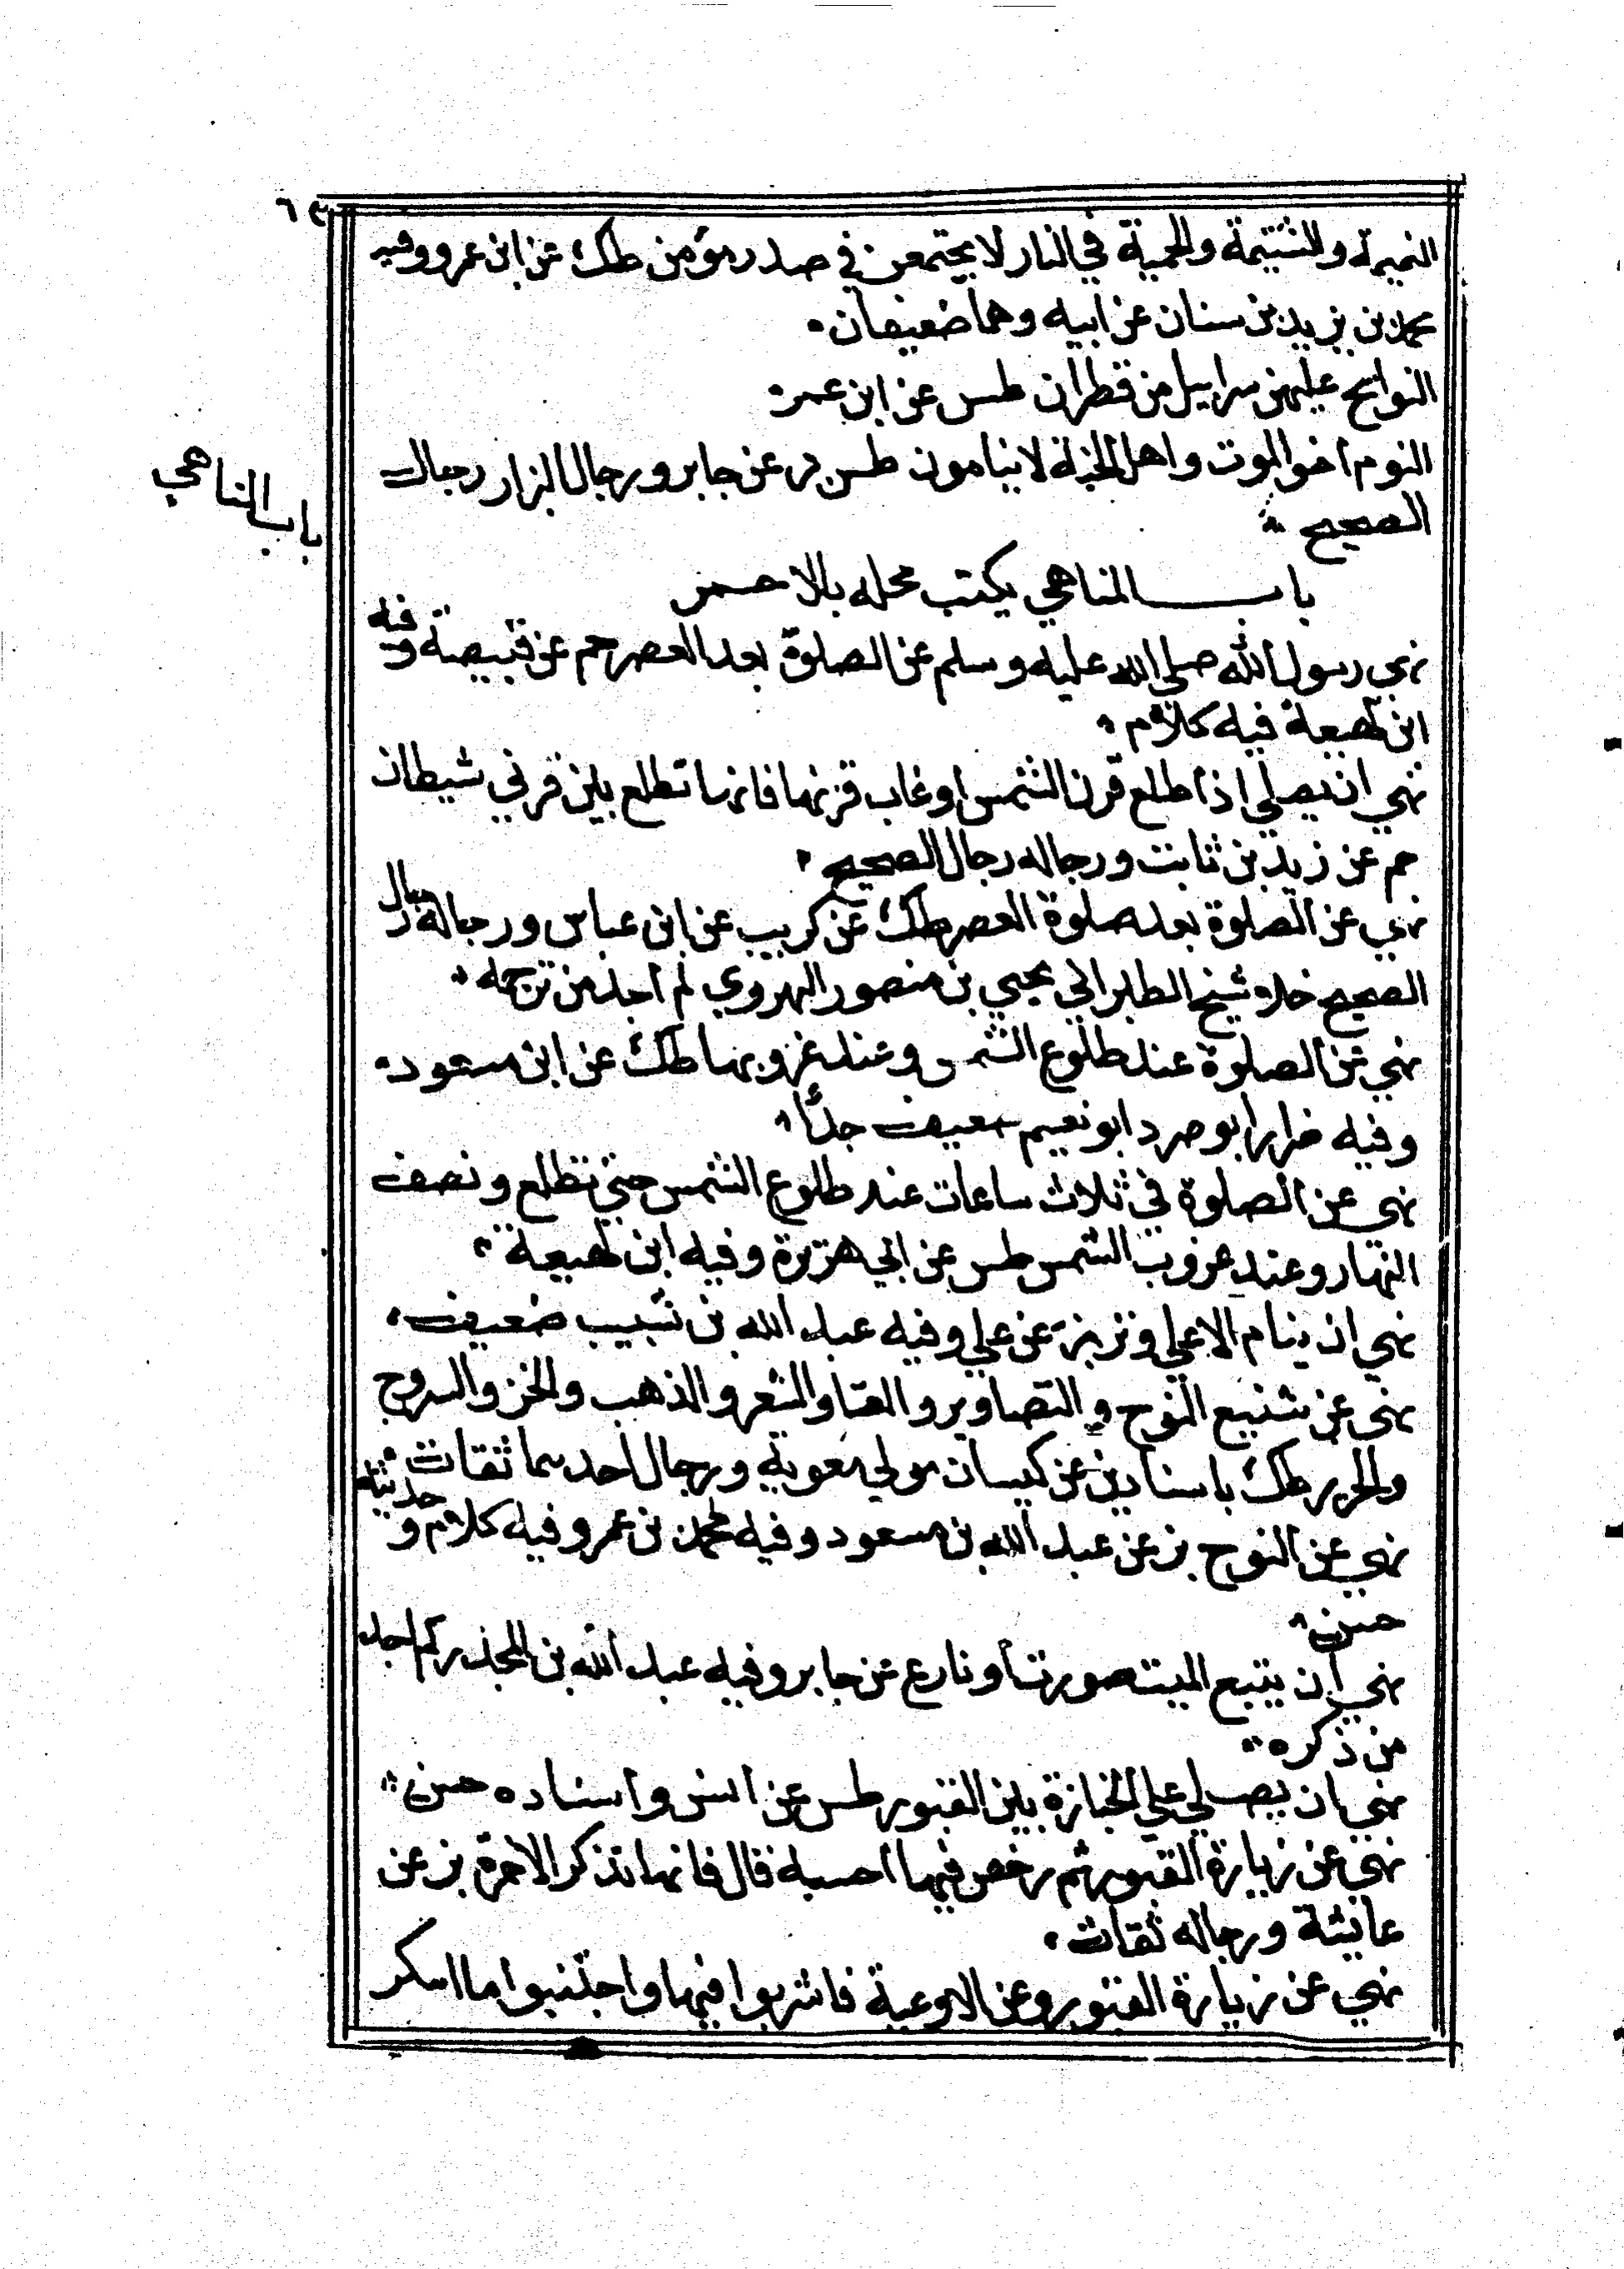 ٦٣
النميمة والشتيمة والحمية في النار لا يجتمعن في صدر مؤمن طك عن ابن عمر وفيه
محمد بن يزيد بن سنان عن ابيه وهما ضعيفان
النوايح عليهن سرابيل من قطران طس عن ابن عمر
النوم اخو الموت واهل الجنة لا ينامون طس بز عن جابر ورجال البزار رجال
الصحيح
باب المناهي
باب المناهي يكتب محله بالاحمر
نهي رسول الله صلي الله عليه وسلم عن الصلوة بعد العصر حم عن قبيصة وفيه
ابن لهيعة فيه كلام
نهي ان يصلي اذا طلع قرن الشمس او غاب قرنها فانها تطلع بين قرني شيطان
حم عن زيد بن ثابت ورجاله رجال الصحيح
نهي عن الصلوة بعد صلوة العصر طك عن كريب عن ابن عباس ورجاله رجال
الصحيح خلا شيخ الطبراني يحيي بن منصور الهروي لم اجد من ترجمه
نهي عن الصلوة عند طلوع الشمس وعند غروبها طك عن ابن مسعود
وفيه ضرار ابو صرد ابو نعيم ضعيف جدا
نهي عن الصلوة في ثلاث ساعات عند طلوع الشمس حتي تطلع ونصف
النهار وعند غروب الشمس طس عن ابي هريرة وفيه ابن لهيعة
نهي ان ينام الاعلي وتر بز عن علي وفيه عبد الله بن شبيب ضعيف
نهي عن تشييع النوح والتصاوير والغنا والشعر والذهب والخز والسروج
والحرير طك باسنادين عن كيسان مولي معوية ورجال احدهما ثقات
نهي عن النوح بز عن عبد الله بن مسعود وفيه محمد بن عمر وفيه كلام وحديثه
حسن
نهي ان يتبع الميت صوت او نار ع عن جابر وفيه عبد الله بن المحذر لم اجد
من ذكره
نهي ان يصلي علي الجنازة بين القبور طس عن انس واسناده حسن
نهي عن زيارة القبور ثم رخص فيها احسبه قال فانها تذكر الاخرة بز عن
عايشة ورجاله ثقات
نهي عن زيارة القبور وعن الاوعية فاشربوا فيها واجتنبوا ما اسكر